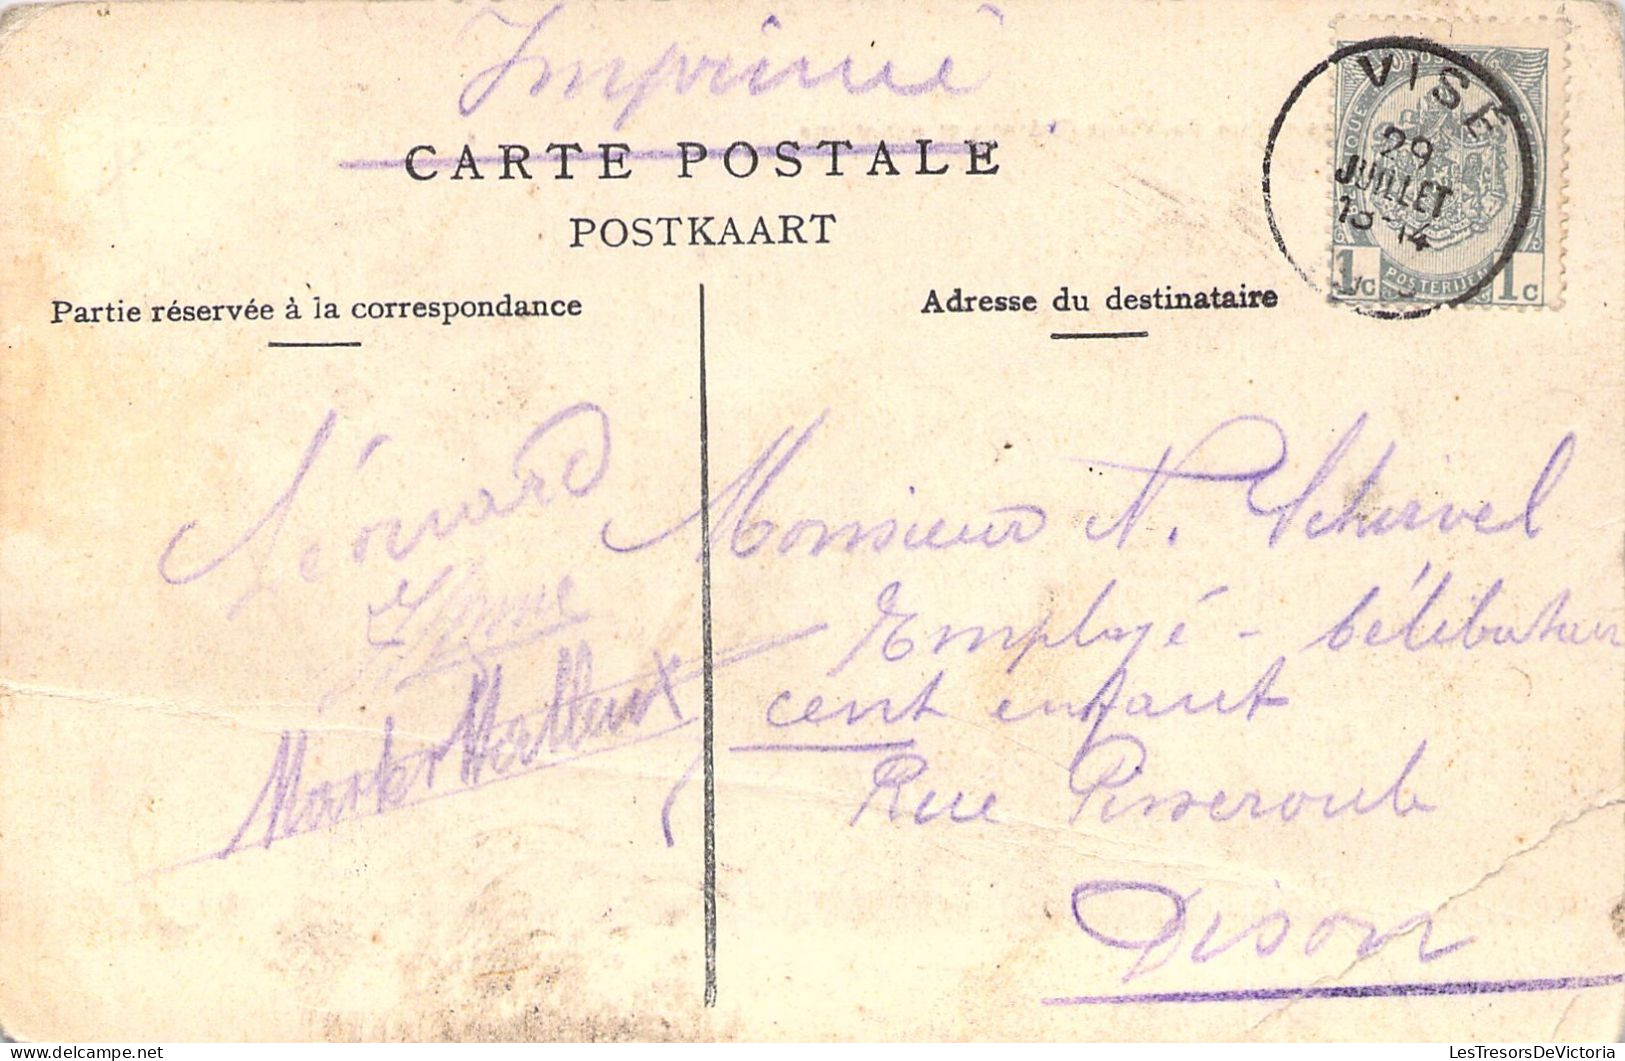 Imprimé
CARTE POSTALE
POSTKAART
Partie réservée à la correspondance
Adresse du destinataire
VISÉ
29
JUILLET
POSTERIJEN
1c 1c
Léonard
Monsieur N. Schirvel
Employé -
cent enfant
Rue Pisseroule
Dison
LesTresorsDeVictoria
© LesTresorsDeVictoria